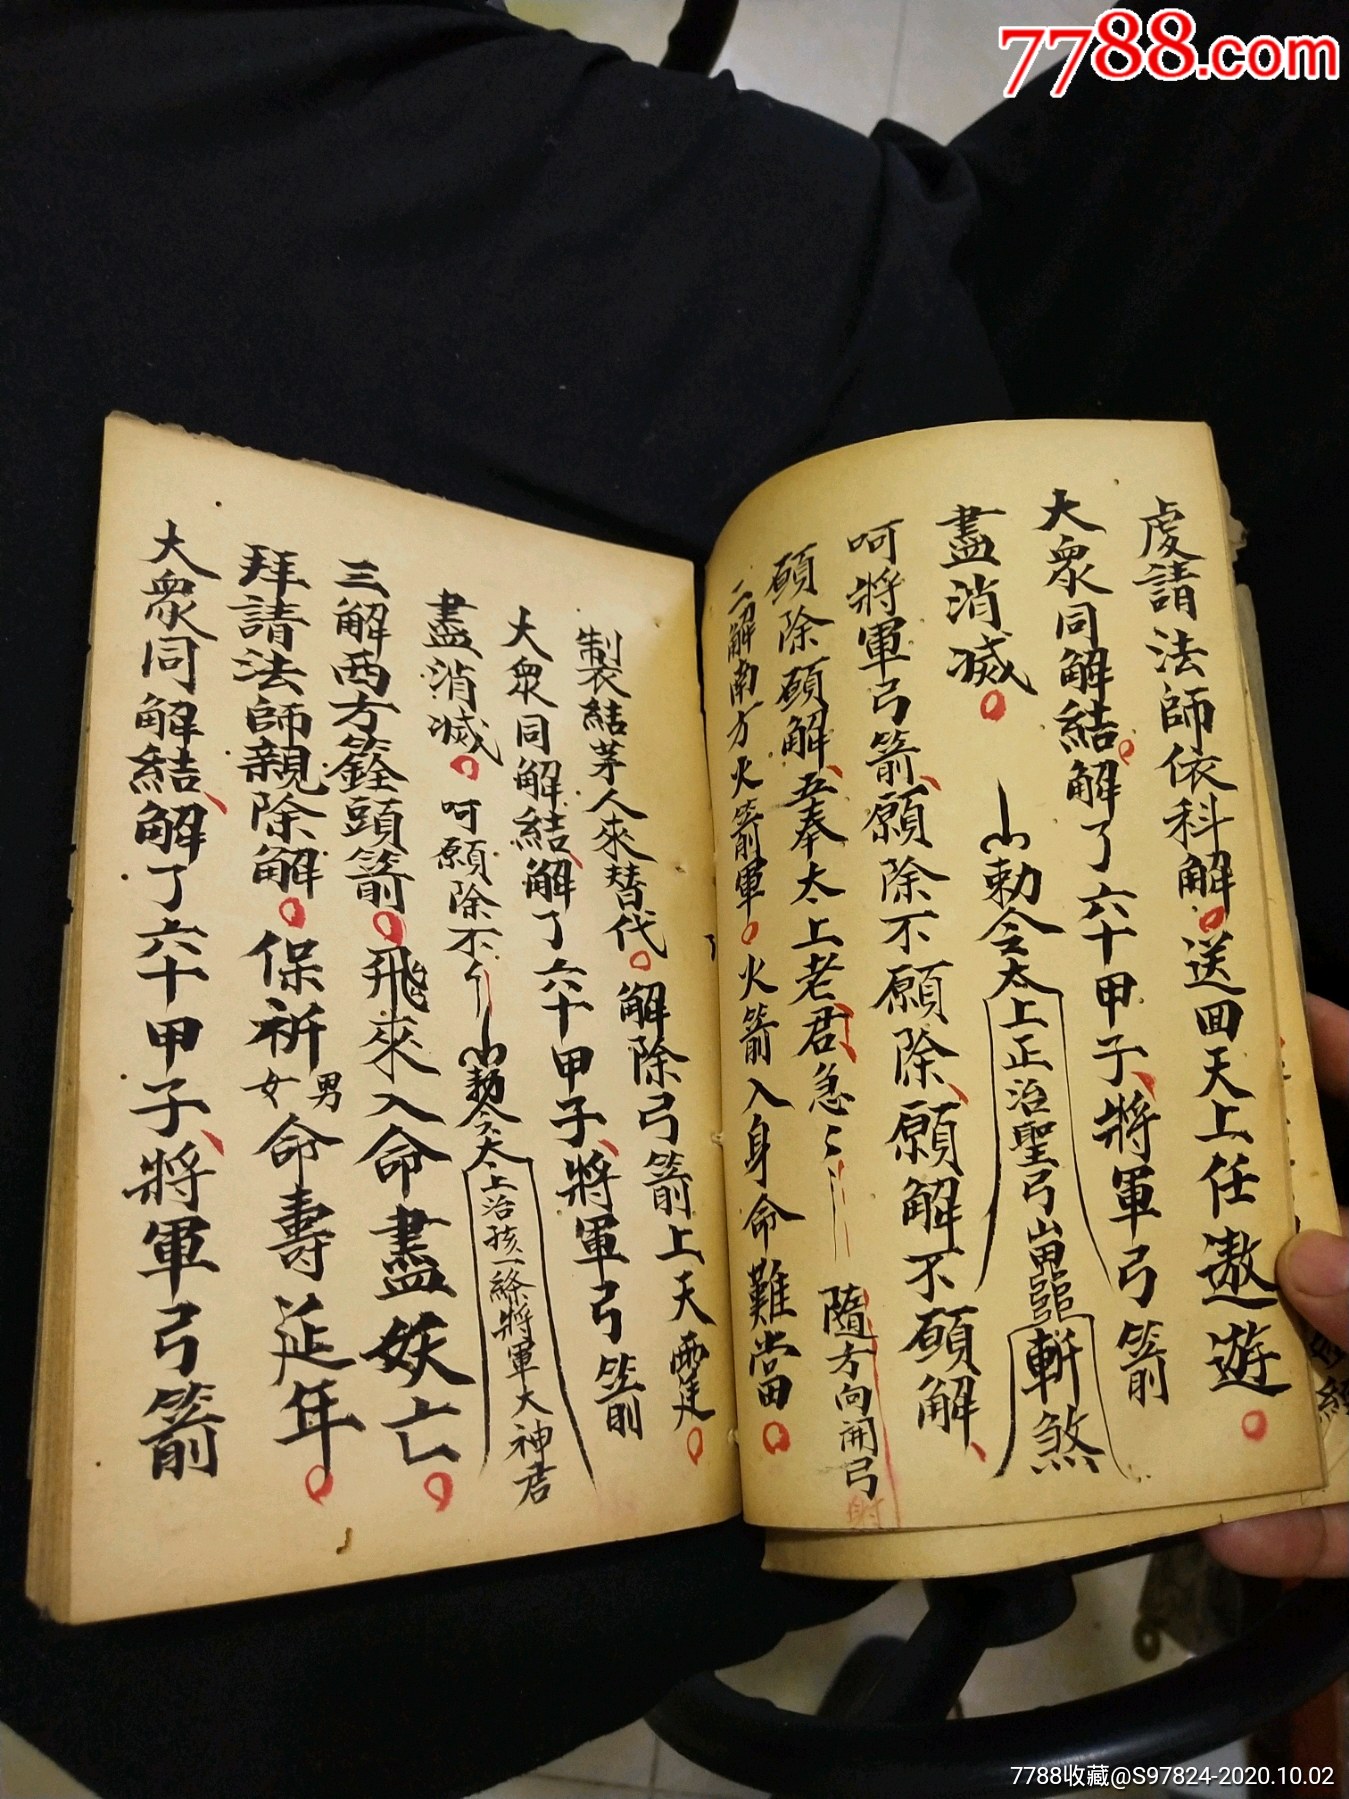 7788.com
虔請法師依科解送回天上任遨遊
大眾同解結解了六十甲子將軍弓箭
盡消滅 勅令太上正治聖弓斬煞
呵將軍弓箭願除不願除願解不願解
願除願解五奉太上老君急〻 隨方向開弓射
二解南方火箭軍火箭入身命難當
製結茅人來替代解除弓箭上天霆
大眾同解結解了六十甲子將軍弓箭
盡消滅 呵願除不 勅令太上治孩一絲將軍大神君
三解西方銓頭箭飛來入命盡妖亡
拜請法師親除解保祈男女命壽延年
大眾同解結解了六十甲子將軍弓箭
7788收藏@S97824-2020.10.02